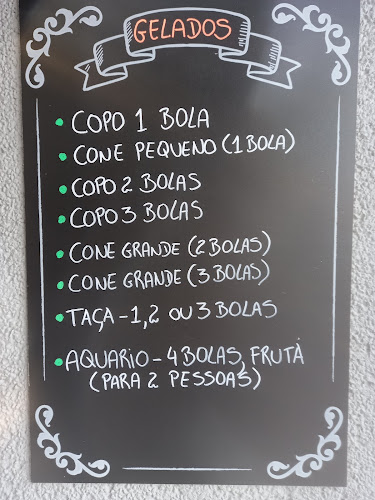 GELADOS
• COPO 1 BOLA
• CONE PEQUENO (1 BOLA)
• COPO 2 BOLAS
• COPO 3 BOLAS
• CONE GRANDE (2 BOLAS)
• CONE GRANDE (3 BOLAS)
• TAÇA - 1, 2 OU 3 BOLAS
• AQUARIO - 4 BOLAS, FRUTA
(PARA 2 PESSOAS)